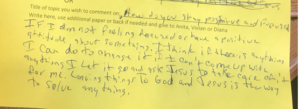 Title of topic you wish to comment on: How do you stay positive and focused
Write here, use additional paper or back if needed and give to Anita, Vivian or Diane
IF I am not feeling focused or have a positive
attitude about something. I think if there is anything
I can do to change it. if I can't come up with
anything I let it go and ask Jesus to take care of it
for me. Giving things to God and Jesus is the way
to solve anything.